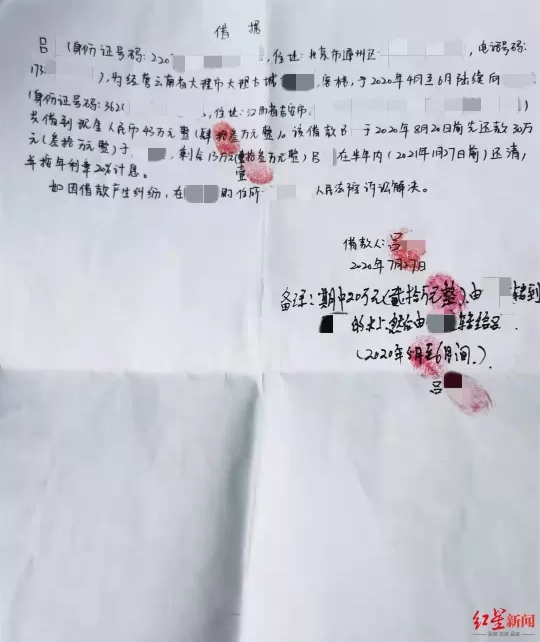 借据
吕 (身份证号码:220 ,住址:北京市 区 ,电话号码:
173 ),为经营云南省大理市大理古城 客栈,于2020年4月至6月陆续向
(身份证号码:3621 ,住址:江西省吉安市, )
共借到现金人民币43万元整(肆拾叁万元整)。该借款吕 于2020年8月20日前先还款30万
元(叁拾万元整)于 ,剩余13万元(壹拾叁万元整)吕 在半年内(2021年1月27日前)还清,
壹
并按年利率20%计息。
如因借款产生纠纷,在 的住所 人民法院诉讼解决。
借款人:吕
2020年7月27日
备注:其中20万元(贰拾万元整)由 转到
的卡上,然后由 转给吕
(2020年5月至6月间。)
吕
红星新闻